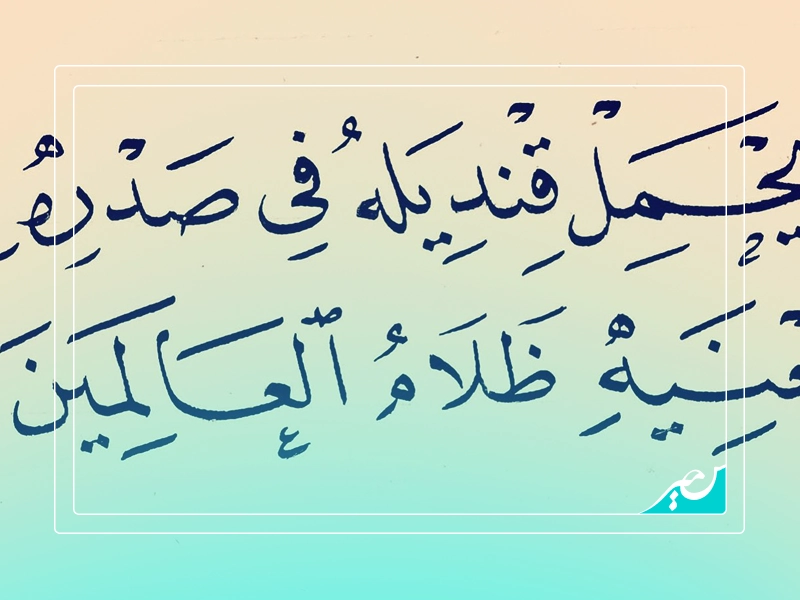 يَحْمِلْ قِنْدِيلَهُ فِي صَدْرِهْ
ـعْنِيهِ ظَلَامُ ٱلْعَالَمِينَ